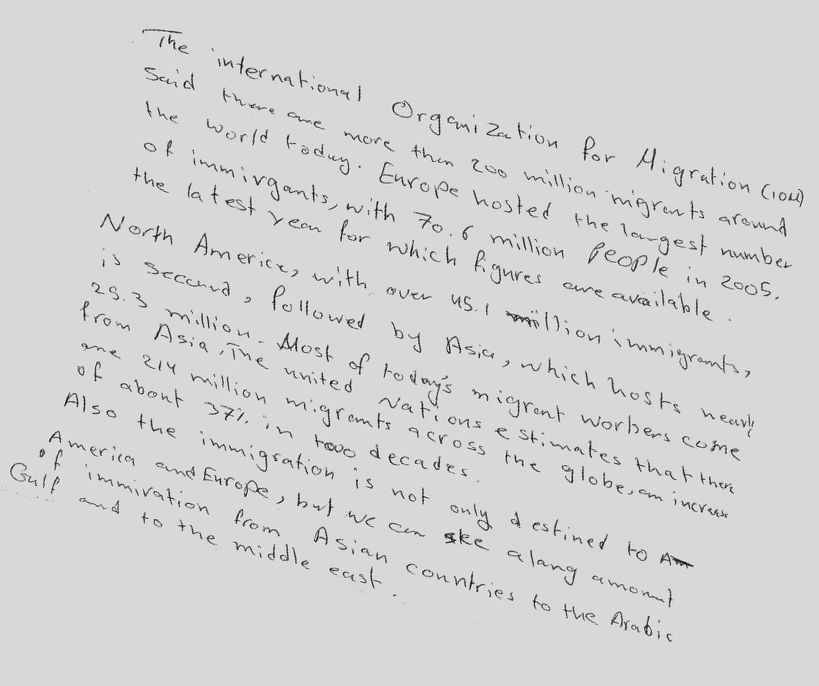 The international Organization for Migration (IOM)
Said there are more than 200 million migrants around
the world today. Europe hosted the largest number
of immirgants, with 70.6 million People in 2005,
the latest year for which figures are available.
North America, with over 45.1 million immigrants,
is second, followed by Asia, which hosts nearly
25.3 million. Most of today's migrant workers come
from Asia. The united Nations estimates that there
are 214 million migrants across the globe, an increase
of about 37% in two decades.
Also the immigration is not only destined to
America and Europe, but we can see alang amount
of immivration from Asian countries to the Arabic
Gulf and to the middle east.